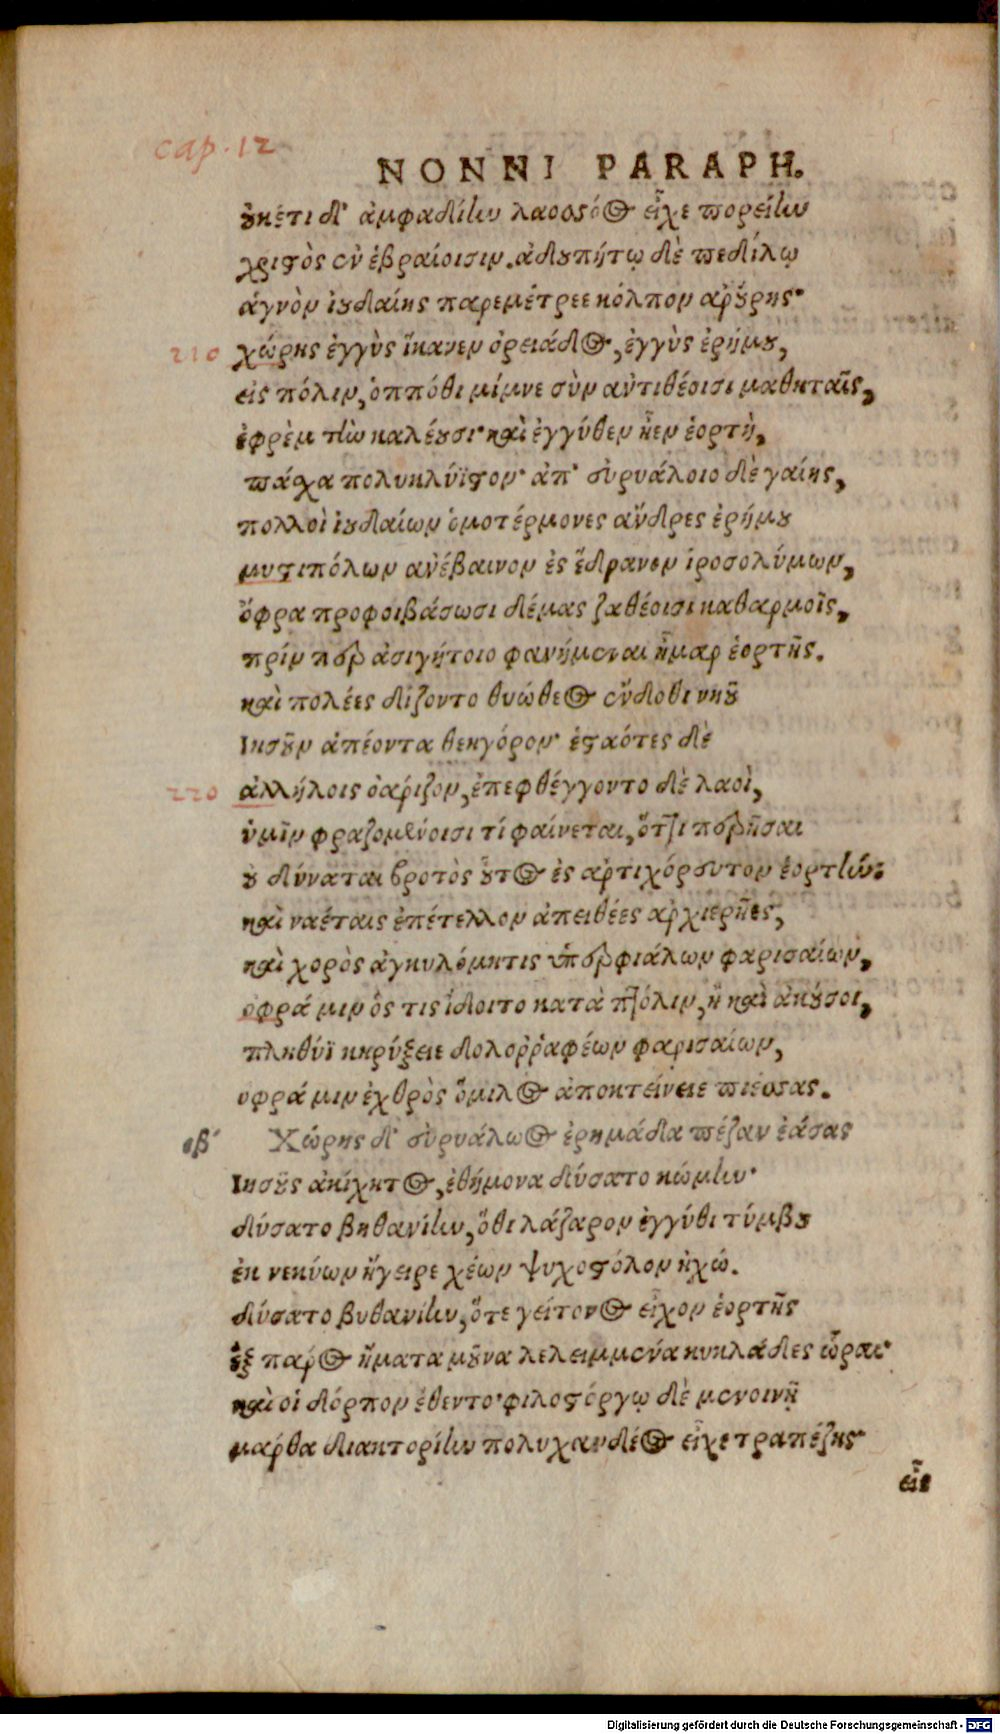 cap. 12
NONNI PARAPH.
οὐκέτι δ' ἀμφαδίην λαοσσόος εἶχε πορείην
χριστὸς ἐν ἑβραίοισιν. ἀδουπήτῳ δὲ πεδίλῳ
ἁγνὸν ἰουδαίης παρεμέτρεε κόλπον ἀρούρης·
210 χώρης ἐγγὺς ἵκανεν ὀρειάδος, ἐγγὺς ἐρήμου,
εἰς πόλιν, ὁππόθι μίμνε σὺν ἀντιθέοισι μαθηταῖς,
ἐφρὲμ τὴν καλέουσι· καὶ ἐγγύθεν ἦεν ἑορτὴ,
πάσχα πολυκλύϊστον· ἀπ' εὐρυάλοιο δὲ γαίης,
πολλοὶ ἰουδαίων ὁμοτέρμονες ἄνδρες ἐρήμου
μυστιπόλων ἀνέβαινον ἐς ἕδρανον ἱροσολύμων,
ὄφρα προφοιβάσωσι δέμας ζαθέοισι καθαρμοῖς,
πρὶν περ ἀσιγήτοιο φανήμεναι ἦμαρ ἑορτῆς.
καὶ πολέες δίζοντο θυώδεος ἔνδοθι νηοῦ
Ιησοῦν ἀπέοντα θεηγόρον· ἑσταότες δὲ
220 ἀλλήλοις ὀάριζον, ἐπεφθέγγοντο δὲ λαοὶ,
ὑμῖν φραζομένοισι τί φαίνεται, ὅττι περῆσαι
οὐ δύναται βροτὸς οὗτος ἐς ἀρτιχόρευτον ἑορτήν;
καὶ ναέταις ἐπέτελλον ἀπειθέες ἀρχιερῆες,
καὶ χορὸς ἀγκυλόμητις ὑπερφιάλων φαρισαίων,
οφρά μιν ὅς τις ἴδοιτο κατὰ πτόλιν, ἢ καὶ ἀκούσοι,
πληθύϊ κηρύξειε δολορῥαφέων φαρισαίων,
οφρά μιν ἐχθρὸς ὅμιλος ἀποκτείνειε πιέσας.
ιβ' Χώρης δ' εὐρυάλωος ἐρημάδα πέζαν ἐάσας
Ιησοῦς ἀκίχητος, ἐθήμονα δύσατο κώμην·
δύσατο βηθανίην, ὅθι λάζαρον ἐγγύθι τύμβου
ἐκ νεκύων ἤγειρε χέων ψυχοστόλον ἠχώ.
δύσατο βυθανίην, ὅτε γείτονος εἶχον ἑορτῆς
ἓξ πάρος ἤματα μοῦνα λελειμμένα κυκλάδες ὧραι·
καὶ οἱ δόρπον ἔθεντο· φιλοστόργῳ δὲ μενοινῇ
μάρθα διακτορίην πολυχανδέος εἶχε τραπέζης·
εἷς
Digitalisierung gefördert durch die Deutsche Forschungsgemeinschaft - DFG